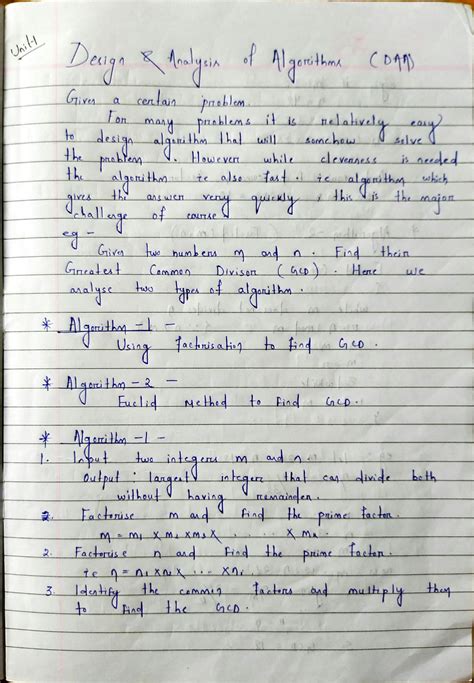 Unit-1
Design & Analysis of Algorithms (DAA)
Given a certain problem.
For many problems it is relatively easy
to design algorithm that will somehow solve
the problem. However while cleverness is needed
the algorithm ie also fast. ie algorithm which
gives the answer very quickly, this is the major
challenge of course
eg -
Given two numbers m and n. Find their
Greatest Common Divisor (GCD). Here we
analyse two types of algorithm.
* Algorithm -1 -
Using factorisation to find GCD.
* Algorithm - 2 -
Euclid Method to Find GCD.
* Algorithm -1 -
1. Input two integers m and n.
Output : largest integer that can divide both
without having remainder.
2. Factorise m and find the prime factor.
m = m₁ x m₂ x m₃ x . . . . x mₖ.
2. Factorise n and find the prime factor.
ie n = n₁ x n₂ x ... x nₖ.
3. Identify the common factors and multiply them
to find the GCD.